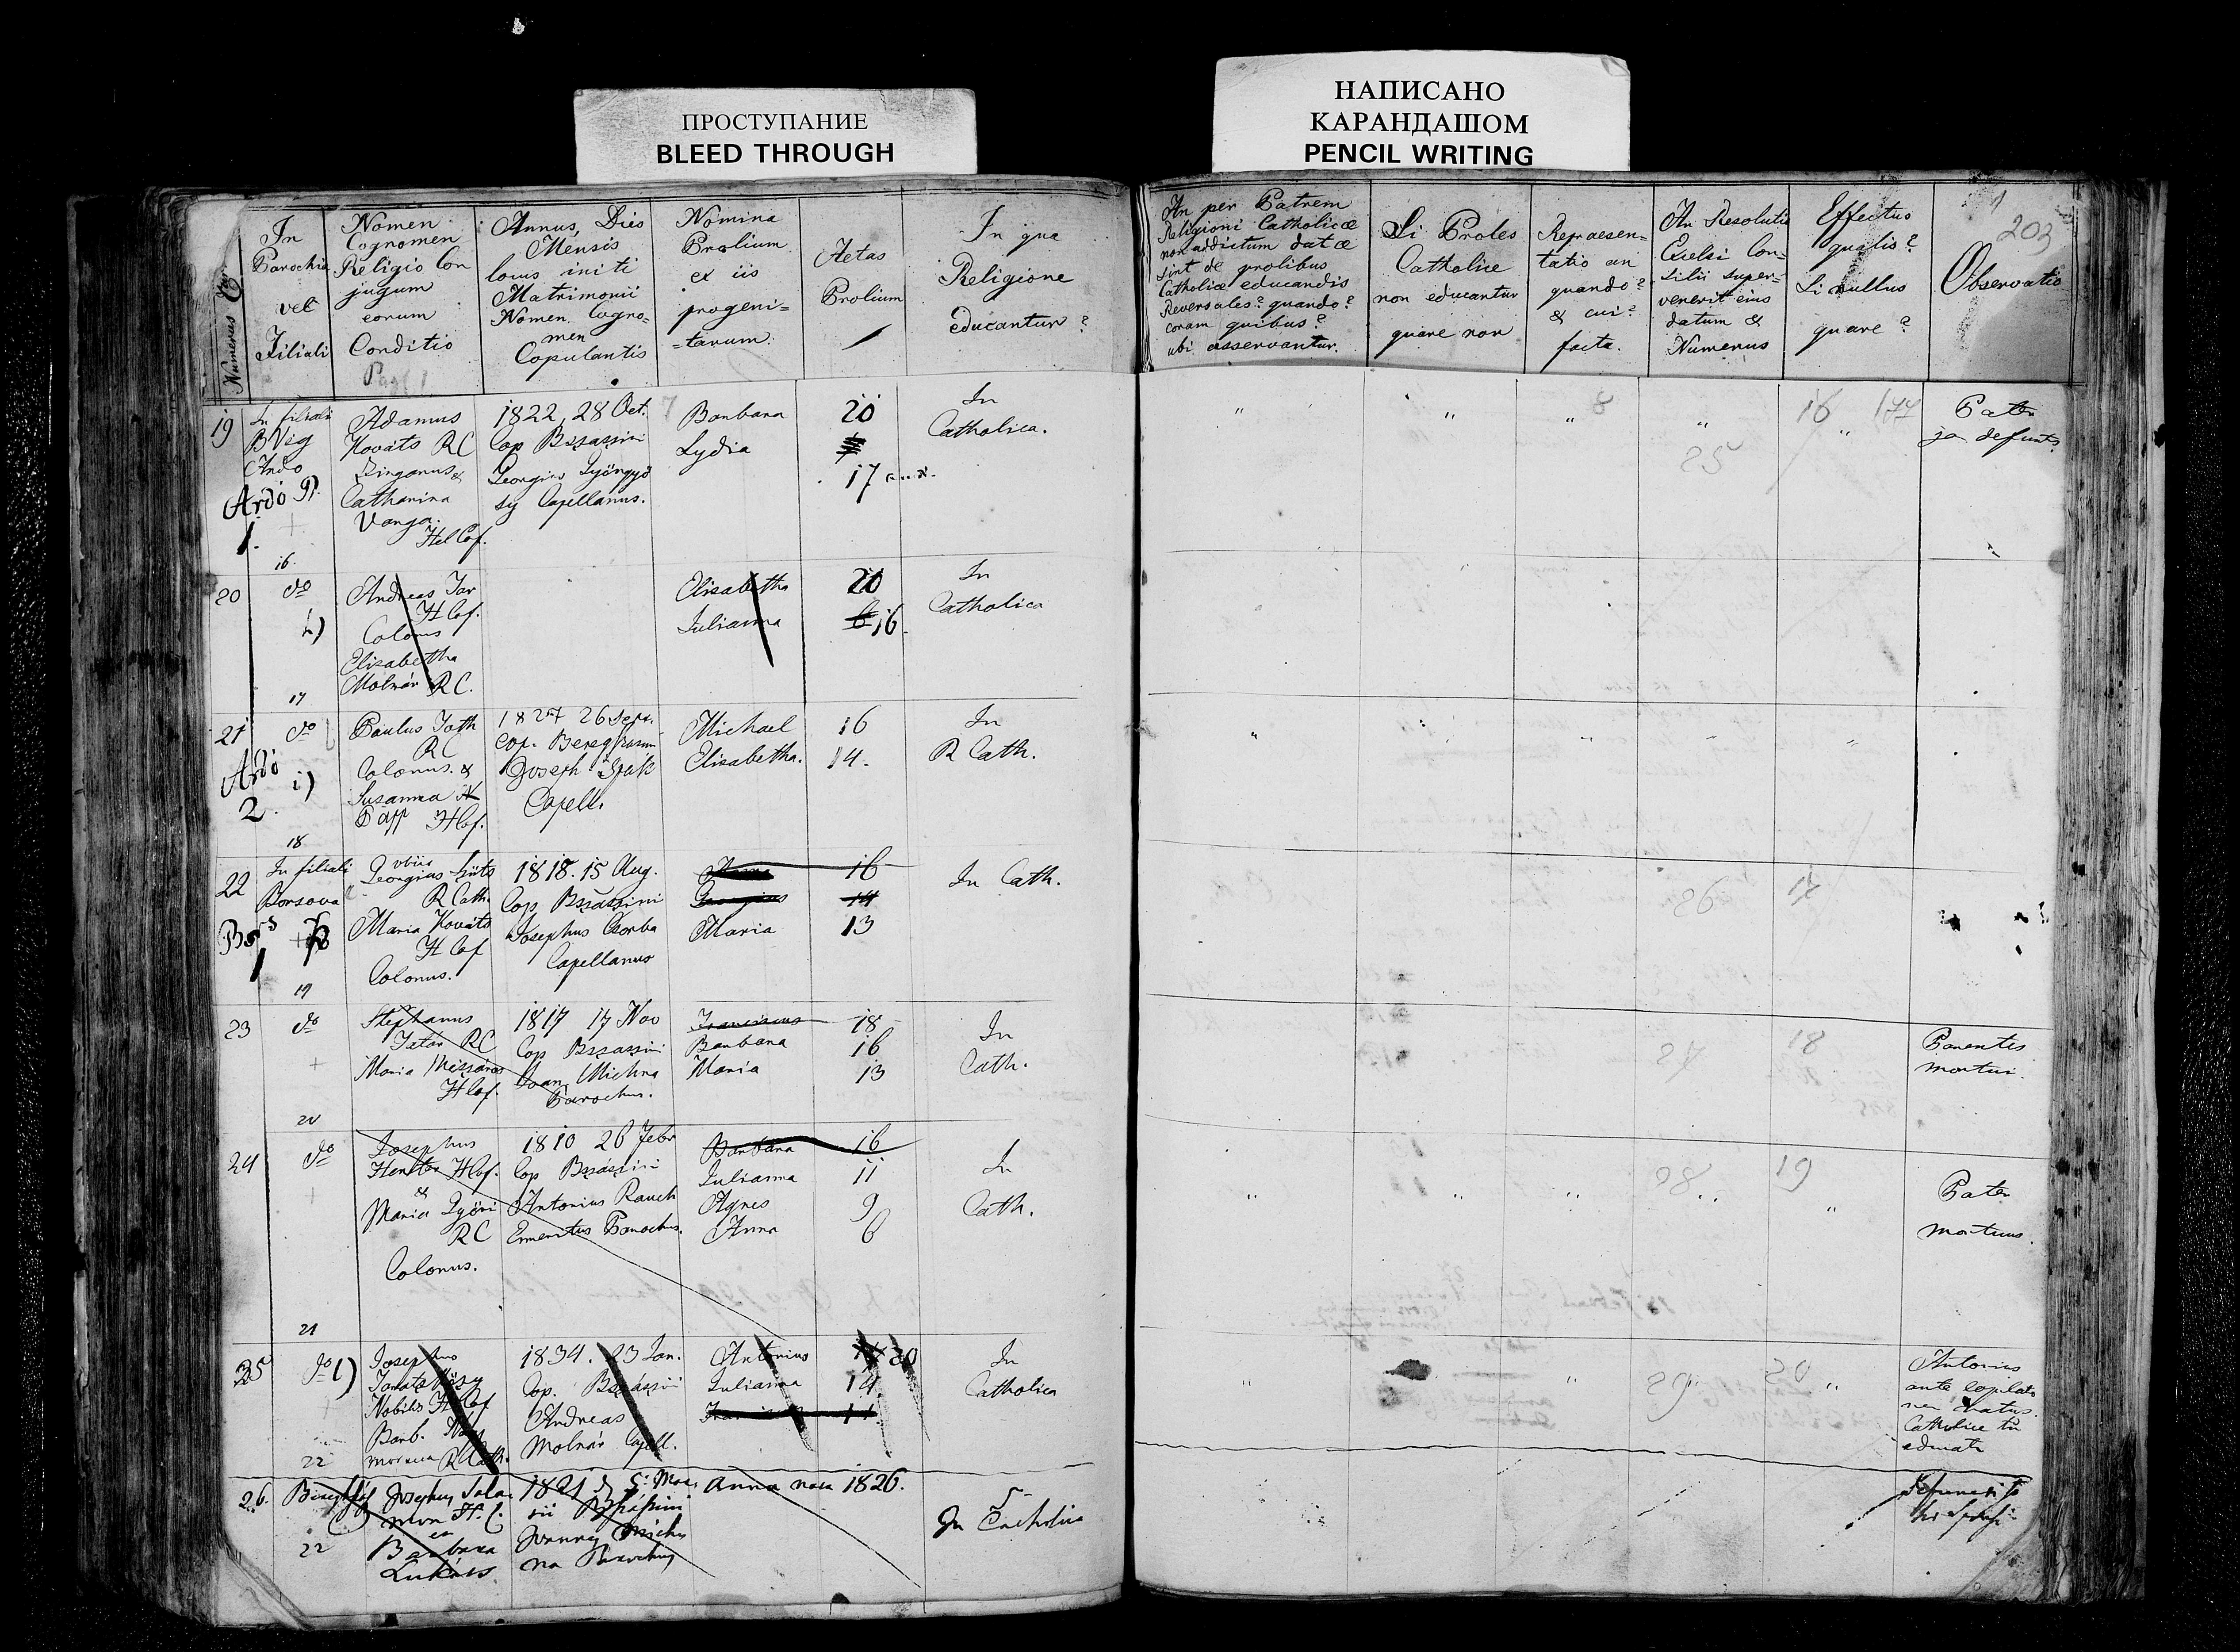 ПРОСТУПАНИЕ
BLEED THROUGH
НАПИСАНО
КАРАНДАШОМ
PENCIL WRITING
Numerus Cur
In
Parochia
vel
Filiali
Nomen
Cognomen
Religio Con
jugum
eorum
Conditio
Annus, Dies
Mensis
locus initi
Matrimonii
Nomen Cogno=
men
Copulantis
Nomina
Prolium
ex iis
progeni=
=tarum
Aetas
Prolium
In qua
Religione
educantur?
An per Patrem
Religioni Catholicæ
non addictum datæ
sint de prolibus
Catholice educandis
Reversales? quando?
coram quibus?
ubi asservantur.
Si Proles
Catholice
non educantur
quare non
Repraesen=
tatio an
quando?
& cui?
facta.
An Resolutio
Excelsi Con=
silii super=
venerit eius
datum &
Numerus
Effectus
qualis?
Si nullus
quare?
203
Observatio
19
In filiali
BVég
Ardo
Ardo
1.
16.
Adamus
Kováts RC
Zinganus &
Catharina
Varga
Hel Cof.
1822, 28 Oct.
Cop Bszászini
Georgius Gyöngyö
sy Capellanus.
Barbara
Lydia
20
17
In
Catholica.
"
"
8
"
"
25
16
"
Pater
ja defunts
20
do
h)
17
Andreas Tar
H Cof.
Colonus
Elisabetha
Molnár RC.
Elisabetha
Julianna
20
16.
In
Catholica
21
do
Ardó
i)
2.
18
Paulus Toth
RC
Colonus. &
Susanna
Papp H Cof.
1827 26 Sept.
Cop. Beregszászini
Joseph Spák
Capell.
Michael
Elisabetha.
16
14.
In
R Cath.
22
In filiali
Borsova
Bors
1
19
obiit
Georgius Szüts
R Cath.
Maria Kováts
H Cof
Colonus.
1818. 15 Aug.
Cop Bszászini
Josephus Csorba
Capellanus
Georgius
Maria
16
14
13
In Cath.
26
17
23
do
20
Stephanus
Tatár RC
Maria Mészáros
H Cof.
1817 17 Nov
Cop Bszászini
Joan. Michna
Parochus.
Franciscus
Barbara
Maria
18
16
13
In
Cath.
27
18
Parentes
mortui.
24
do
21
Josephus
H Cof.
&
Maria Györi
RC
Colonus.
1810 26 Febr
Cop Bszászini
Antonius Rauch
Emeritus Parochus.
Barbara
Julianna
Agnes
Anna
16
11
9
6
In
Cath.
28
19
Pater
mortuus.
25
do
l)
22
Josephus
Nobilis H Cof
Barb.
R Cath.
1834. 23 Jan.
Cop. Bszászini
Andreas
Molnár Capell.
Antonius
Julianna
20
14
11
In
Catholica
29
20
Antonius
ante copulatio
nem natus.
Catholice
educatur
26.
22
Josephus Sala
mon H. C.
et
Barbara
Lukáts
1821 d 5 Mar
tii Bszászini
Joannes Mich
na Parochus
Anna nata 1826.
5
In Catholica